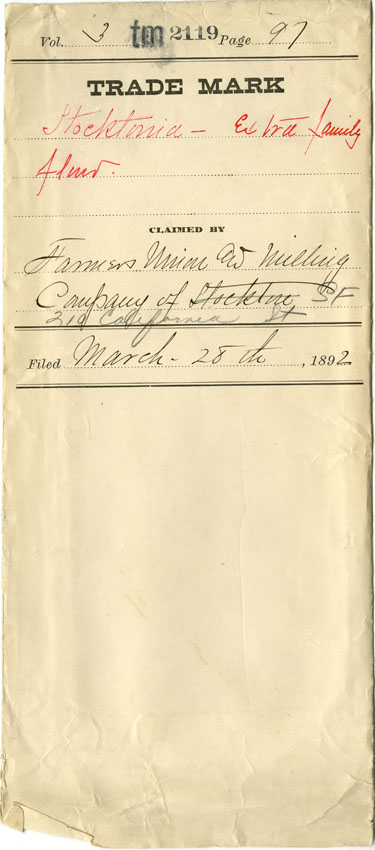 Vol. 3 tm 2119 Page 97
TRADE MARK
Stocktonia - Extra family
flour.
CLAIMED BY
Farmers Union and Milling
Company of Stockton SF
210 California St
Filed March - 28th, 1892